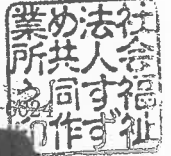 社会福祉
法人すず
め共同作
業所